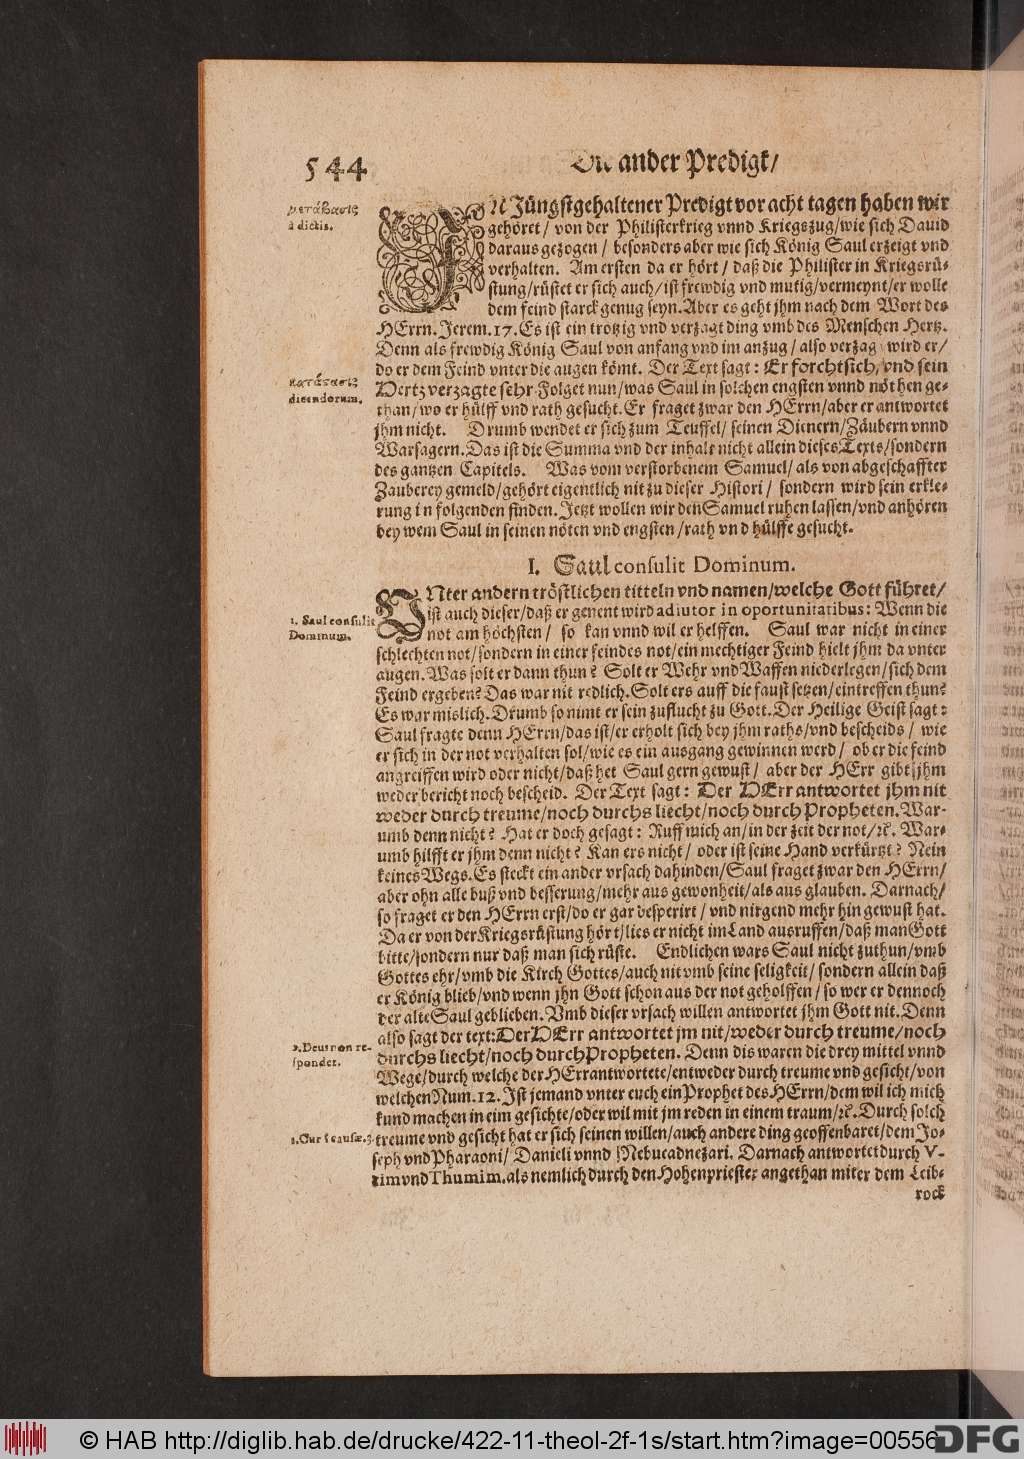 544
Die ander Predigt/
μετάβασις
à dictis.
IN Jüngstgehaltener Predigt vor acht tagen haben wir
gehöret/ von der Philisterkrieg vnnd Kriegszug/wie sich Dauid
daraus gezogen/ besonders aber wie sich König Saul erzeigt vnd
verhalten. Am ersten da er hört/ daß die Philister in Kriegsrü-
stung/rüstet er sich auch/ist frewdig vnd mutig/vermeynt/er wolle
dem feind starck genug seyn. Aber es geht jhm nach dem Wort des
HErrn. Jerem. 17. Es ist ein trotzig vnd verzagt ding vmb des Menschen Hertz.
Denn als frewdig König Saul von anfang vnd im anzug/ also verzag wird er/
do er dem Feind vnter die augen kömt. Der Text sagt: Er forcht sich, vnd sein
κατάστασις
dicendorum.
Hertz verzagte sehr. Folget nun/was Saul in solchen engsten vnnd nöthen ge-
than/wo er hülff vnd rath gesucht. Er fraget zwar den HErrn/aber er antwortet
jhm nicht. Drumb wendet er sich zum Teuffel/ seinen Dienern/Zäubern vnnd
Warsagern. Das ist die Summa vnd der inhalt nicht allein dieses Texts/sondern
des gantzen Capitels. Was vom verstorbenem Samuel/ als von abgeschaffter
Zauberey gemeld/gehört eigentlich nit zu dieser Histori/ sondern wird sein erkle-
rung in folgenden finden. Jetzt wollen wir den Samuel ruhen lassen/vnd anhören
bey wem Saul in seinen nöten vnd engsten/rath vnd hülffe gesucht.
I. Saul consulit Dominum.
VNter andern tröstlichen titteln vnd namen/welche Gott führet/
ist auch dieser/daß er genent wird adiutor in oportunitatibus: Wenn die
1. Saul consulit
Dominum.
not am höchsten/ so kan vnnd wil er helffen. Saul war nicht in einer
schlechten not/sondern in einer feindes not/ein mechtiger Feind hielt jhm da vnter
augen. Was solt er dann thun? Solt er Wehr vnd Waffen niederlegen/sich dem
Feind ergeben? Das war nit redlich. Solt ers auff die faust setzen/ein treffen thun?
Es war mislich. Drumb so nimt er sein zuflucht zu Gott. Der Heilige Geist sagt:
Saul fragte denn HErrn/das ist/er erholt sich bey jhm raths/vnd bescheids/ wie
er sich in der not verhalten sol/wie es ein ausgang gewinnen werd/ ob er die feind
angreiffen wird oder nicht/daß het Saul gern gewust/ aber der HErr gibt jhm
weder bericht noch bescheid. Der Text sagt: Der HErr antwortet jhm nit
weder durch treume/noch durchs liecht/noch durch Propheten. War-
umb denn nicht? Hat er doch gesagt: Ruff mich an/in der zeit der not/ꝛc. War-
umb hilfft er jhm denn nicht? Kan ers nicht/ oder ist seine Hand verkürtzt? Nein
keines Wegs. Es steckt ein ander vrsach dahinden/Saul fraget zwar den HErrn/
aber ohn alle buß vnd besserung/mehr aus gewonheit/als aus glauben. Darnach/
so fraget er den HErrn erst/do er gar desperirt/ vnd nirgend mehr hin gewust hat.
Da er von der Kriegsrüstung hört/lies er nicht im Land ausruffen/daß man Gott
bitte/sondern nur daß man sich rüste. Endlichen wars Saul nicht zuthun/vmb
Gottes ehr/vmb die Kirch Gottes/auch nit vmb seine seligkeit/ sondern allein daß
er König blieb/vnd wenn jhn Gott schon aus der not geholffen/ so wer er dennoch
der alte Saul geblieben. Vmb dieser vrsach willen antwortet jhm Gott nit. Denn
also sagt der text: Der HErr antwortet jm nit/weder durch treume/noch
2. Deus non re-
spondet.
durchs liecht/noch durch Propheten. Denn dis waren die drey mittel vnnd
Wege/durch welche der HErr antwortete/entweder durch treume vnd gesicht/von
welchen Num. 12. Ist jemand vnter euch ein Prophet des HErrn/dem wil ich mich
kund machen in eim gesichte/oder wil mit jm reden in einem traum/ꝛc. Durch solch
3. Cur? causæ. 3.
treume vnd gesicht hat er sich seinen willen/auch andere ding geoffenbaret/dem Jo-
seph vnd Pharaoni/ Danieli vnnd Nebucadnezari. Darnach antwortet durch V-
rim vnd Thumim. als nemlich durch den Hohenpriester angethan mit er dem Leib-
rock
© HAB http://diglib.hab.de/drucke/422-11-theol-2f-1s/start.htm?image=00556
DFG